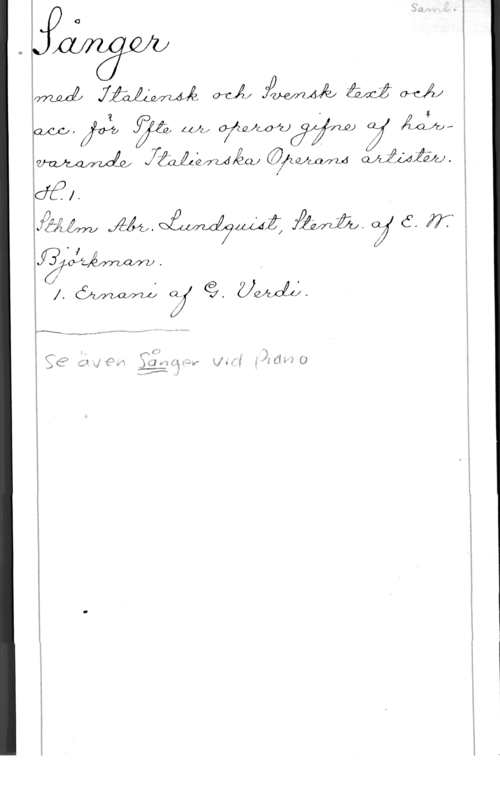 Saml.
Sånger
med Italiensk och Svensk text och
acc. för Pfte ur operor gifne af här-
varande Italienska Operans artister.
H. 1.
Sthlm Abr. Lundquist, Stentr. af E. W.
Björkman.
1. Ernani af G. Verdi.
Se även Sånger vid piano